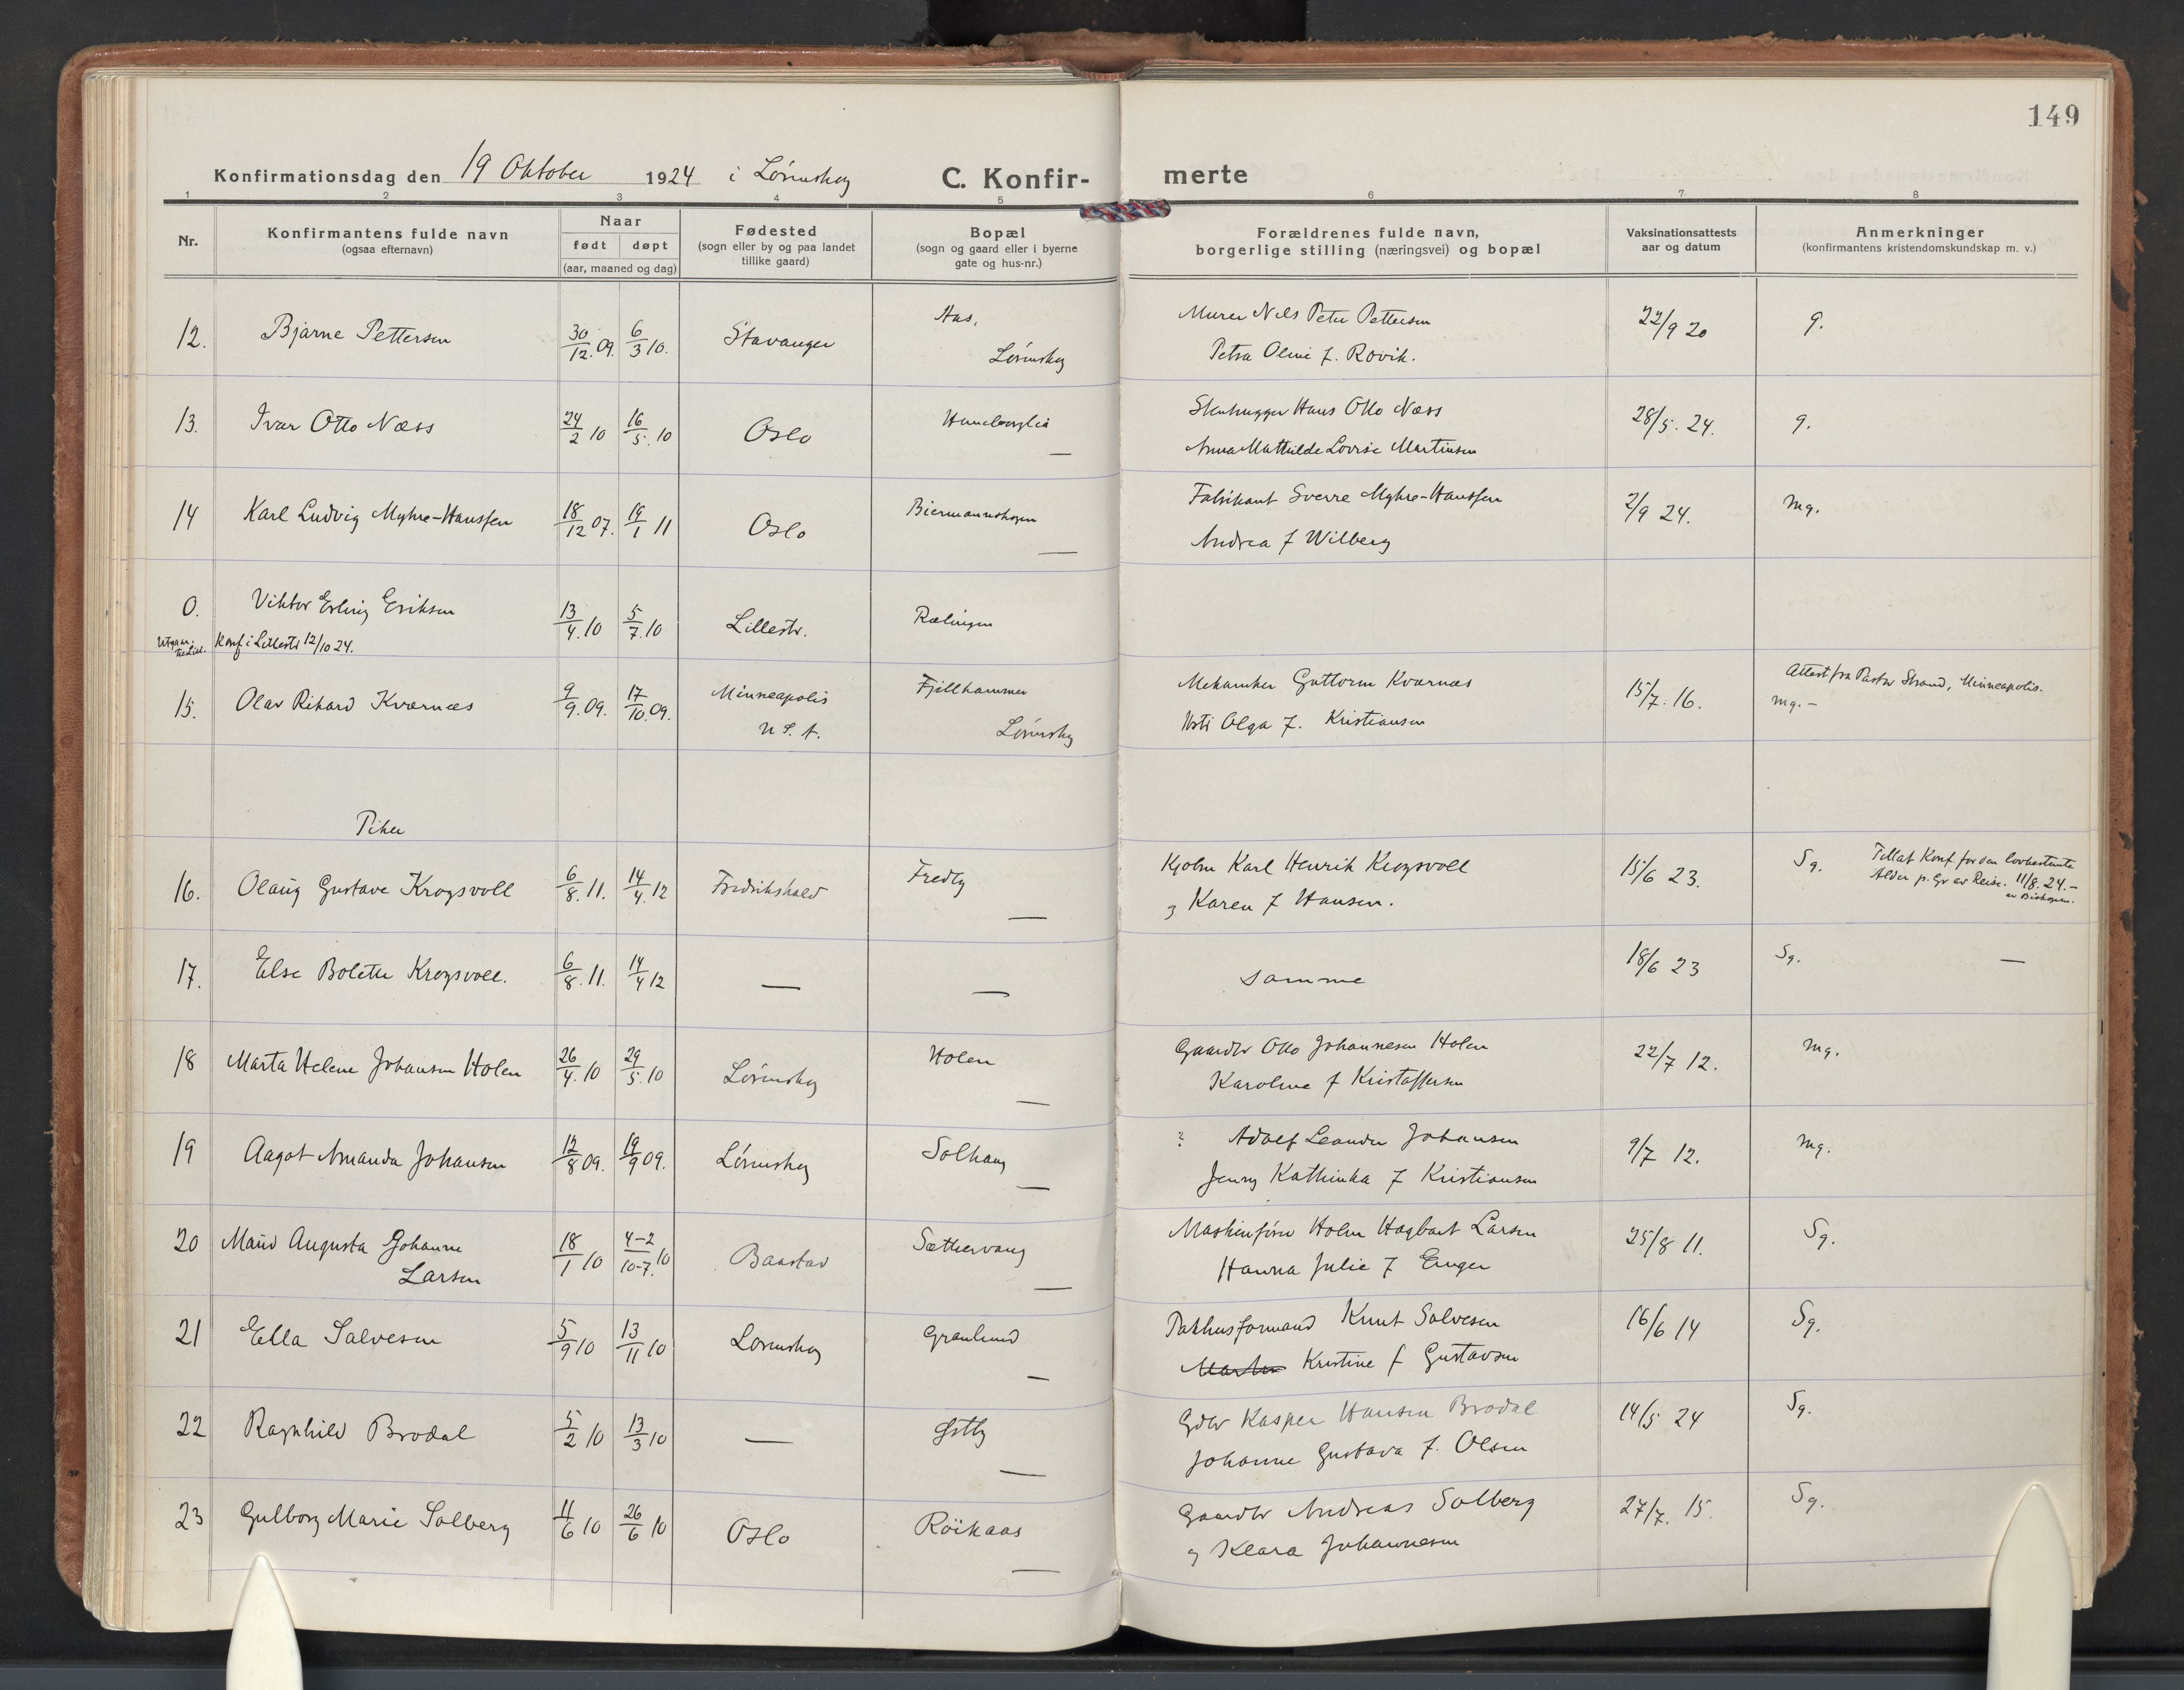 149
Konfirmationsdag den 19 Oktober 1924 i Lørenskog C. Konfir- merte
1 2 3 4 5 6 7 8
Nr. Konfirmantens fulde navn (ogsaa efternavn) Naar født døpt (aar, maaned og dag) Fødested (sogn eller by og paa landet tillike gaard) Bopæl (sogn og gaard eller i byerne gate og hus-nr.) Forældrenes fulde navn, borgerlige stilling (næringsvei) og bopæl Vaksinationsattests aar og datum Anmerkninger (konfirmantens kristendomskundskap m. v.)
12. Bjarne Pettersen 30/12.09. 6/3 10. Stavanger Aas, Lørenskog Murer Nils Peter Pettersen 22/9 20 g.
Petra Oline f. Rovik.
13. Ivar Otto Næss 24/2 10 16/5. 10 Oslo — Stenhugger Hans Otto Næss 28/5. 24. g.
Anna Mathilde Lovise Martinsen
14 Karl Ludvig Myhre-Hanssen 18/12 07. 19/1 11 Oslo Biermannskogen — Fabrikant Sverre Myhre-Hanssen 2/9 24. mg.
Andrea f Wilberg
0. Viktor Erling Eriksen 13/4.10 5/7.10 Lillestr. Rælingen
Konf i Lillestr 12/10 24.
15. Olav Rikard Kværnæs 9/9.09. 17/10.09. Minneapolis U. S. A. Fjellhammer Lørenskog Mekaniker Guttorm Kværnæs 15/7. 16. Attest fra Pastor Strand, Minneapolis.
Olga f. Kristiansen mg. —
Piker
16. Olaug Gustave Krogsvoll 6/8.11. 14/4.12 Fredrikshald Fredly — Karl Henrik Krogsvoll 15/6 23. Sg. Tillat Konf. før den lovbestemte
og Karen f Hansen. Alder p. Gr av Reise. 11/8. 24. —
av Biskopen.
17. Else Bolette Krogsvoll. 6/8.11. 14/4 12 — — Samme 18/6 23 Sg. —
18 Marta Helene Johansen Holen 26/4.10 29/5.10 Lørenskog Holen — Gaardbr Otto Johannesen Holen 22/7 12. mg.
Karoline f Kristoffersen
19 Aagot Amanda Johansen 12/8 09. 19/9 09. Lørenskog Solhaug — ? Adolf Leander Johansen 9/7 12. mg.
Jenny Kathinka f Kristiansen
20 Maud Augusta Johanne Larsen 18/1 10 4-2/10-7.10 Baastad Sæthervang — Maskinfører Holm Hagbart Larsen 25/8 11. Sg.
Hanna Julie f Enger
21 Ella Salvesen 5/9 10 13/11 10 Lørenskog Granlund — Pakhusformand Knut Salvesen 16/6 14 Sg.
Kristine f Gustavsen
22 Ragnhild Brodal 5/2 10 13/3 10 — Østby — Gdbr Kasper Hansen Brodal 14/5 24 Sg.
Johanne Gustava f. Olsen
23 Gulborg Marie Solberg 11/6 10 26/6 10 Oslo Röikaas — Gaardbr Andreas Solberg 27/7. 15. Sg.
og Klara Johannesen